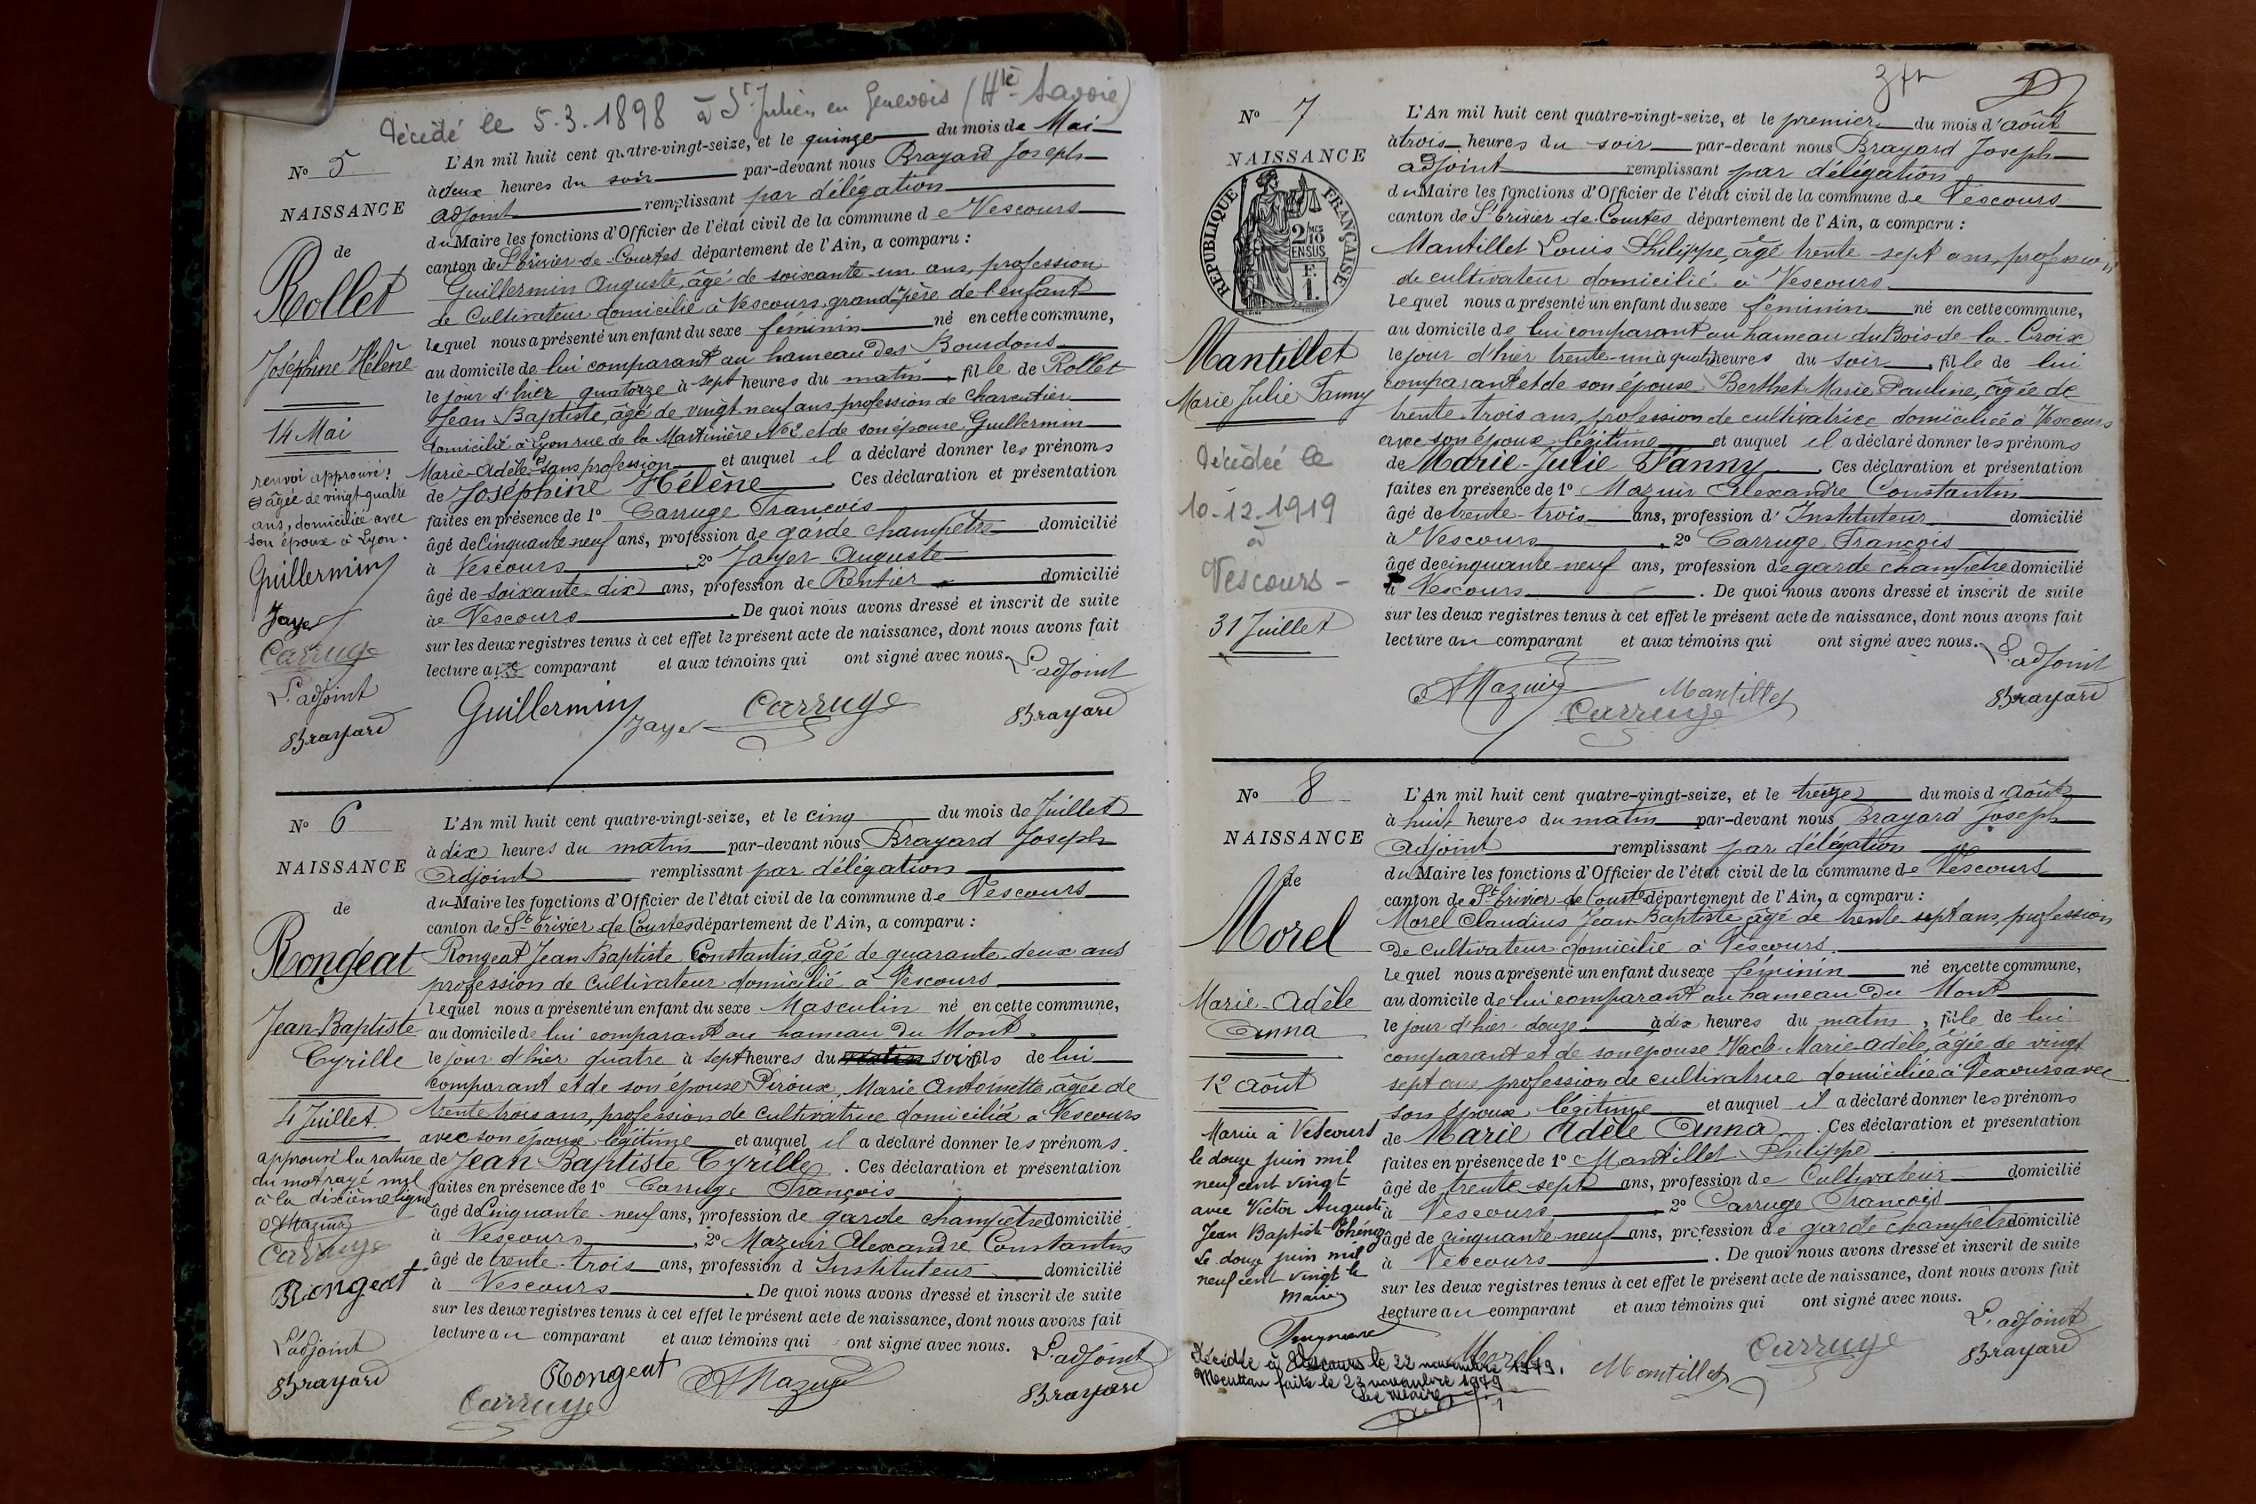 Décédé le 5.3.1898 à St Julien en Genevois (Hte Savoie)
No 5
NAISSANCE
de
Rollet
Joséphine Hélène
14 Mai
renvoi approuvé :
âgée de vingt-quatre
ans, domiciliée avec
son époux à Lyon.
Guillermin
Jayer
Carruge
L'adjoint
Brayard
L'An mil huit cent quatre-vingt-seize, et le quinze du mois de Mai
à deux heures du soir par-devant nous Brayard Joseph
adjoint remplissant par délégation
du Maire les fonctions d'Officier de l'état civil de la commune de Vescours
canton de St Trivier-de-Courtes département de l'Ain, a comparu :
Guillermin Auguste, âgé de soixante-un ans, profession
de Cultivateur domicilié à Vescours, grand-père de l'enfant
lequel nous a présenté un enfant du sexe féminin né en cette commune,
au domicile de lui comparant au hameau des Bourdons
le jour d'hier quatorze à sept heures du matin, fille de Rollet
Jean Baptiste, âgé de vingt neuf ans profession de charcutier
domicilié à Lyon rue de la Martinière No 2 et de son épouse Guillermin
Marie-Adèle sans profession et auquel il a déclaré donner les prénoms
de Joséphine Hélène. Ces déclaration et présentation
faites en présence de 1o Carruge François
âgé de Cinquante neuf ans, profession de garde champêtre domicilié
à Vescours, 2o Jayer Auguste
âgé de soixante-dix ans, profession de Rentier domicilié
à Vescours. De quoi nous avons dressé et inscrit de suite
sur les deux registres tenus à cet effet le présent acte de naissance, dont nous avons fait
lecture au comparant et aux témoins qui ont signé avec nous.
L'adjoint
Guillermin Jayer Carruge Brayard
No 6
NAISSANCE
de
Rongeat
Jean-Baptiste
Cyrille
4 Juillet
approuvé la rature
du mot rayé nul
à la dixième ligne
AMazuir
Carruge
Rongeat
L'adjoint
Brayard
L'An mil huit cent quatre-vingt-seize, et le cinq du mois de Juillet
à dix heures du matin par-devant nous Brayard Joseph
Adjoint remplissant par délégation
du Maire les fonctions d'Officier de l'état civil de la commune de Vescours
canton de St Trivier de Courtes département de l'Ain, a comparu :
Rongeat Jean Baptiste Constantin, âgé de quarante-deux ans
profession de cultivateur domicilié à Vescours
lequel nous a présenté un enfant du sexe Masculin né en cette commune,
au domicile de lui comparant au hameau du Mont
le jour d'hier quatre à sept heures du matin soir, fils de lui
comparant et de son épouse Piroux, Marie Antoinette âgée de
trente trois ans, profession de cultivatrice domiciliée à Vescours
avec son époux légitime et auquel il a déclaré donner les prénoms
de Jean Baptiste Cyrille. Ces déclaration et présentation
faites en présence de 1o Carruge François
âgé de Cinquante-neuf ans, profession de garde champêtre domicilié
à Vescours, 2o Mazuir Alexandre Constantin
âgé de trente-trois ans, profession d'Instituteur domicilié
à Vescours. De quoi nous avons dressé et inscrit de suite
sur les deux registres tenus à cet effet le présent acte de naissance, dont nous avons fait
lecture au comparant et aux témoins qui ont signé avec nous.
L'adjoint
Rongeat AMazuir
Carruge Brayard
No 7
NAISSANCE
RÉPUBLIQUE FRANÇAISE
2/10 EN SUS
F. 1.
Mantillet
Marie Julie Fanny
Décédée le
10-12-1919
à
Vescours -
31 Juillet
L'An mil huit cent quatre-vingt-seize, et le premier du mois d'août
à trois heures du soir par-devant nous Brayard Joseph
adjoint remplissant par délégation
du Maire les fonctions d'Officier de l'état civil de la commune de Vescours
canton de St Trivier de Courtes département de l'Ain, a comparu :
Mantillet Louis Philippe, âgé trente-sept ans, profession
de cultivateur domicilié à Vescours
lequel nous a présenté un enfant du sexe féminin né en cette commune,
au domicile de lui comparant au hameau du Bois-de-la-Croix
le jour d'hier trente-un à quatre heures du soir, fille de lui
comparant et de son épouse Berthet Marie Pauline, âgée de
trente-trois ans, profession de cultivatrice domiciliée à Vescours
avec son époux légitime et auquel il a déclaré donner les prénoms
de Marie-Julie Fanny. Ces déclaration et présentation
faites en présence de 1o Mazuir Alexandre Constantin
âgé de trente-trois ans, profession d'Instituteur domicilié
à Vescours, 2o Carruge François
âgé de cinquante-neuf ans, profession de garde champêtre domicilié
à Vescours. De quoi nous avons dressé et inscrit de suite
sur les deux registres tenus à cet effet le présent acte de naissance, dont nous avons fait
lecture au comparant et aux témoins qui ont signé avec nous.
L'adjoint
AMazuir Mantillet
Carruge Brayard
No 8
NAISSANCE
de
Morel
Marie-Adèle
Anna
12 août
Mariée à Vescours
le douze juin mil
neuf cent vingt
avec Victor Auguste
Jean Baptiste
Le douze juin mil
neuf cent vingt le
Maire
Décédée à Vescours le 22 novembre 1979.
Mention faite le 23 novembre 1979
Le Maire
L'An mil huit cent quatre-vingt-seize, et le treize du mois d'août
à huit heures du matin par-devant nous Brayard Joseph
Adjoint remplissant par délégation
du Maire les fonctions d'Officier de l'état civil de la commune de Vescours
canton de St Trivier de Courtes département de l'Ain, a comparu :
Morel Claudius Jean-Baptiste âgé de trente sept ans, profession
de cultivateur domicilié à Vescours.
lequel nous a présenté un enfant du sexe féminin né en cette commune,
au domicile de lui comparant au hameau du Mont
le jour d'hier douze à dix heures du matin, fille de lui
comparant et de son épouse Marie-Adèle, âgée de vingt
sept ans profession de cultivatrice domiciliée à Vescours avec
son époux légitime et auquel il a déclaré donner les prénoms
de Marie Adèle Anna. Ces déclaration et présentation
faites en présence de 1o Mantillet Philippe
âgé de trente-sept ans, profession de Cultivateur domicilié
à Vescours, 2o Carruge François
âgé de cinquante-neuf ans, profession de garde champêtre domicilié
à Vescours. De quoi nous avons dressé et inscrit de suite
sur les deux registres tenus à cet effet le présent acte de naissance, dont nous avons fait
lecture au comparant et aux témoins qui ont signé avec nous.
L'adjoint
Morel Mantillet Carruge Brayard